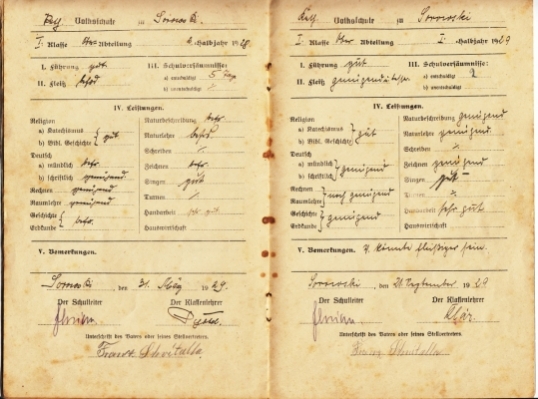 Kath. Volksschule zu Sorowski.
I. Klasse Abteilung Halbjahr 1928
I. Führung gut
II. Fleiß befrd
III. Schulversäumnisse:
a) entschuldigt 5 Tage
b) unentschuldigt
IV. Leistungen.
Religion
a) Katechismus
b) Bibl. Geschichte gut
Deutsch
a) mündlich befr.
b) schriftlich genügend
Rechnen genügend
Raumlehre genügend
Geschichte
Erdkunde befr.
Naturbeschreibung befr.
Naturlehre befrd.
Schreiben
Zeichnen befr.
Singen gut
Turnen
Handarbeit gut
Hauswirtschaft
V. Bemerkungen.
Sorowski, den 31. März 1929.
Der Schulleiter Der Klassenlehrer
Unterschrift des Vaters oder seines Stellvertreters.
Franz
Kath. Volksschule zu Sorowski
I. Klasse Abteilung I. Halbjahr 1929
I. Führung gut
II. Fleiß
III. Schulversäumnisse:
a) entschuldigt 2
b) unentschuldigt
IV. Leistungen.
Religion
a) Katechismus
b) Bibl. Geschichte gut
Deutsch
a) mündlich
b) schriftlich genügend
Rechnen
Raumlehre noch genügend
Geschichte
Erdkunde genügend
Naturbeschreibung genügend
Naturlehre genügend.
Schreiben
Zeichnen genügend
Singen gut
Turnen
Handarbeit sehr gut
Hauswirtschaft
V. Bemerkungen. könnte fleißiger sein.
Sorowski, den 21. September 1929
Der Schulleiter Der Klassenlehrer
Unterschrift des Vaters oder seines Stellvertreters.
Franz